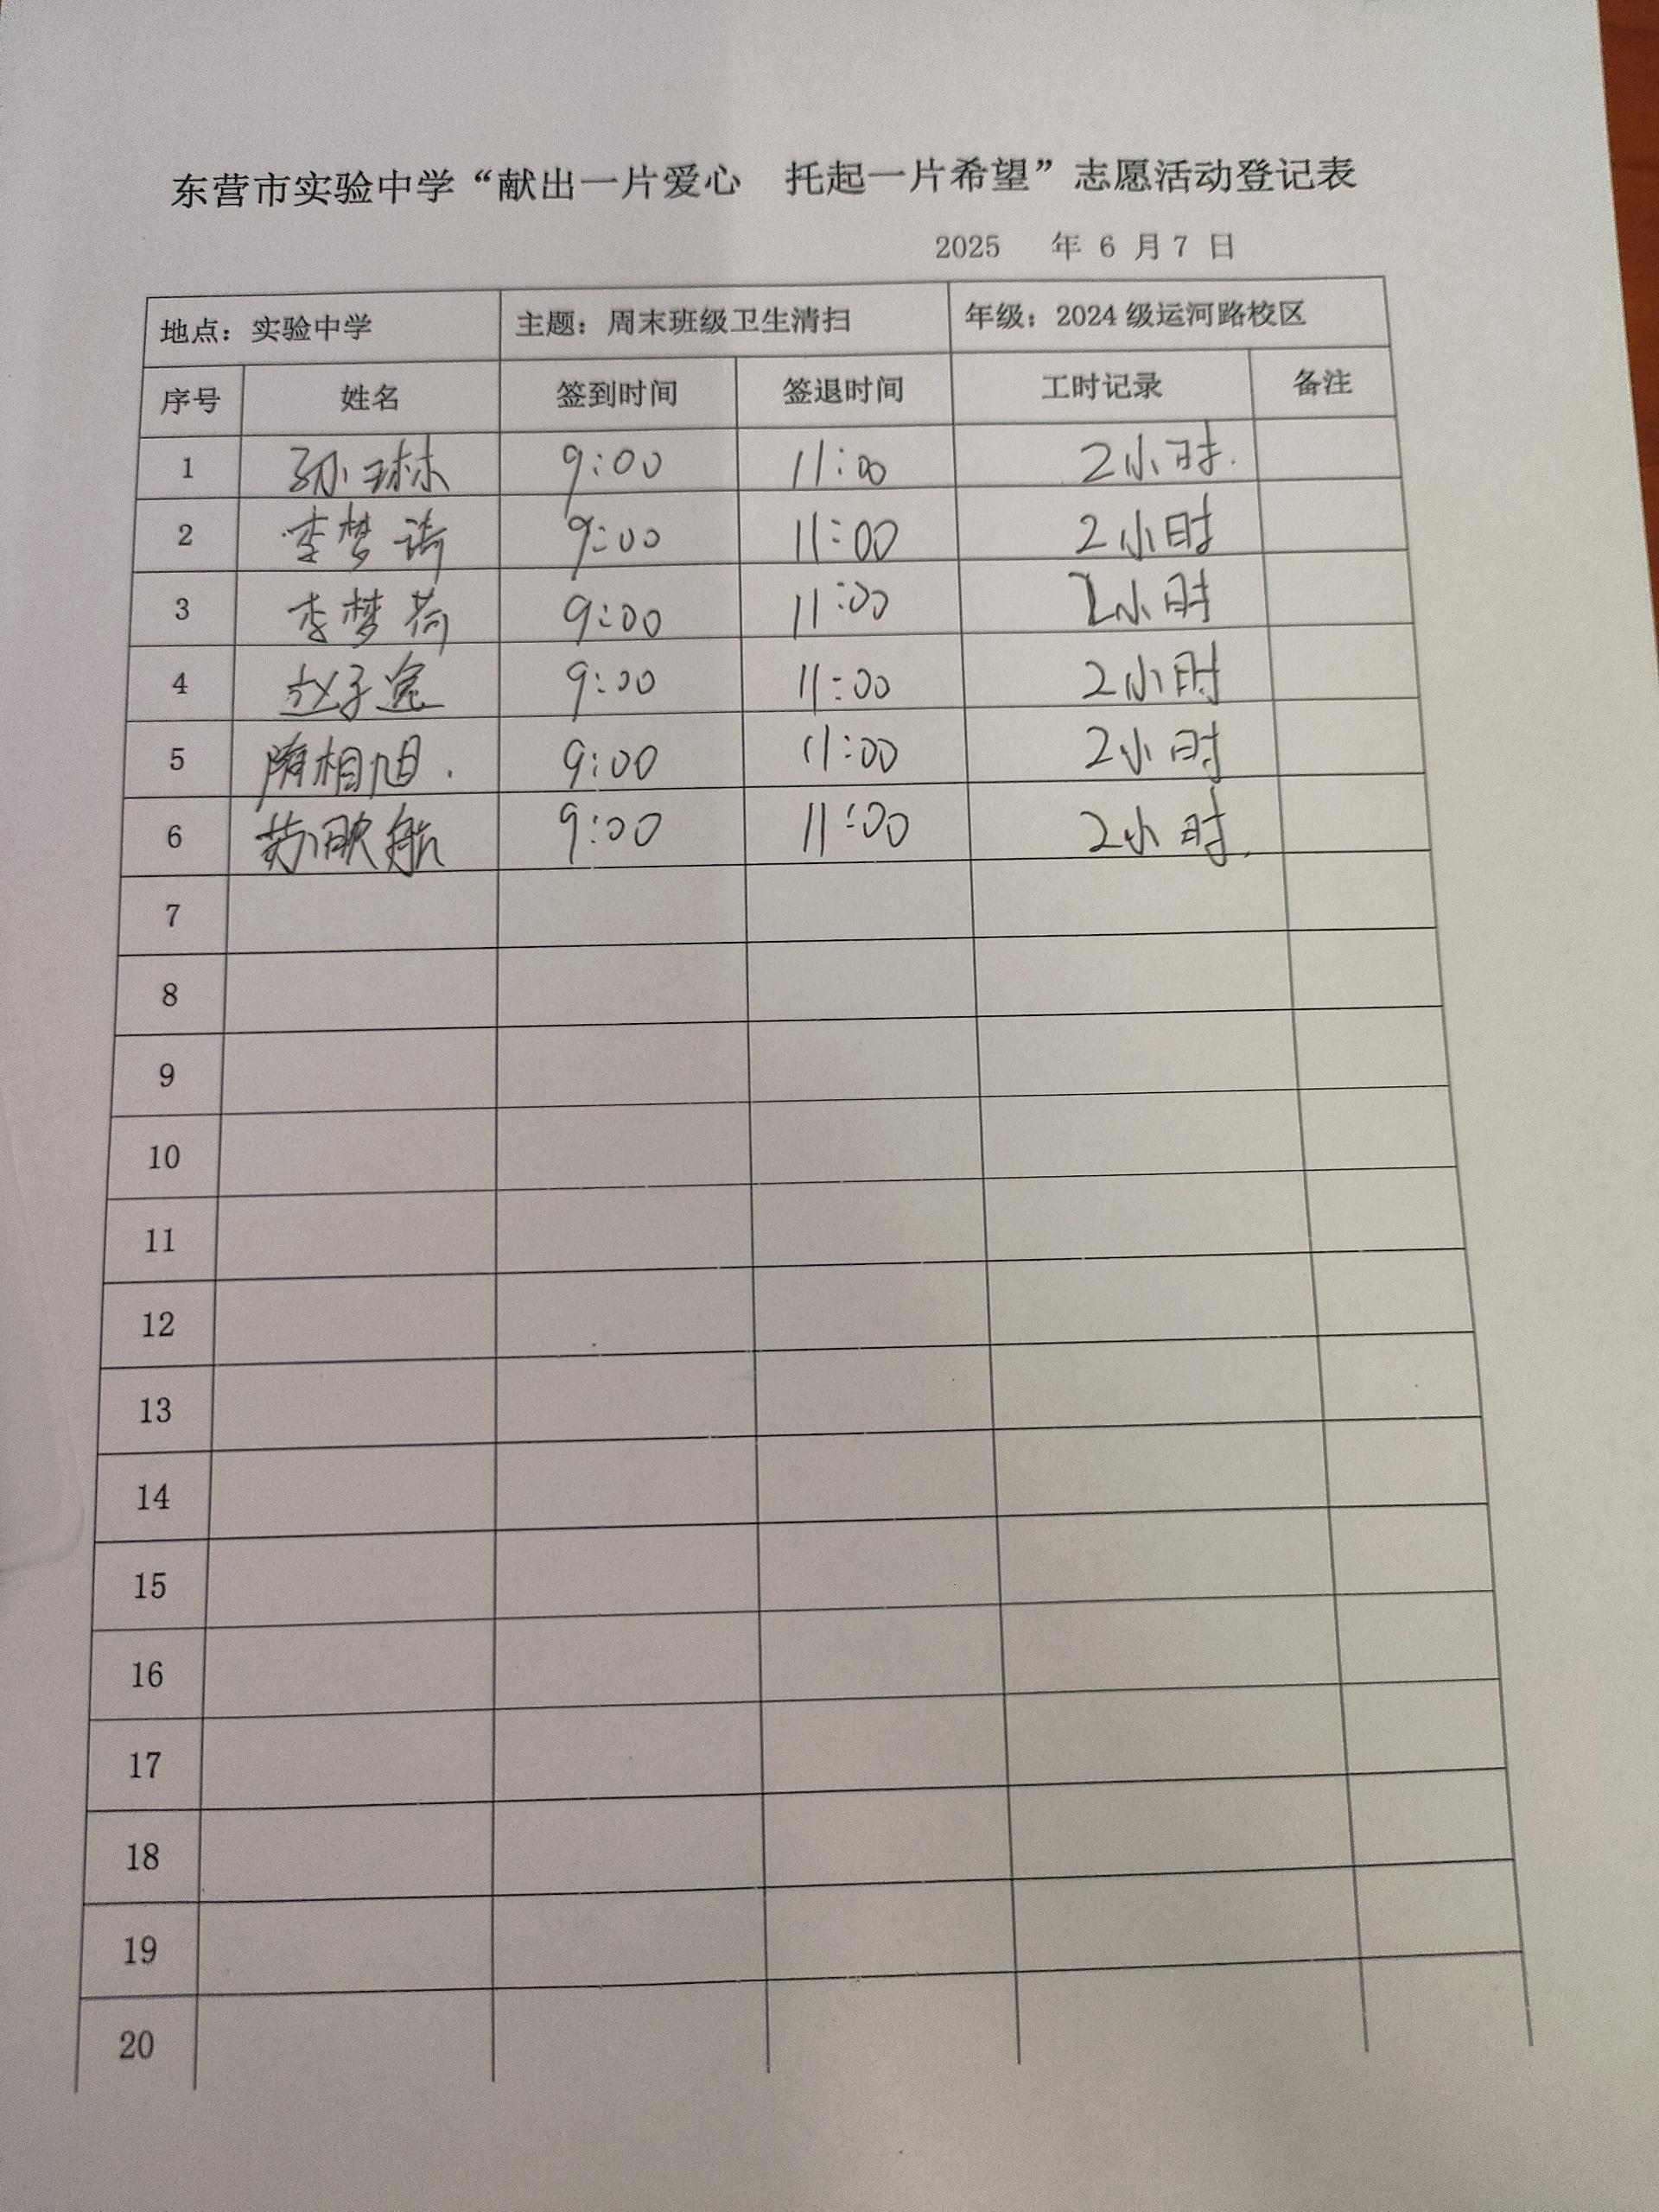 东营市实验中学“献出一片爱心 托起一片希望”志愿活动登记表
2025 年 6 月 7 日
地点：实验中学 主题：周末班级卫生清扫 年级：2024 级运河路校区
序号 姓名 签到时间 签退时间 工时记录 备注
1 孙琳 9:00 11:00 2小时.
2 李梦 9:00 11:00 2小时
3 李梦荷 9:00 11:00 2小时
4 赵子 9:00 11:00 2小时
5 隋相旭. 9:00 11:00 2小时
6 苏航 9:00 11:00 2小时.
7
8
9
10
11
12
13
14
15
16
17
18
19
20